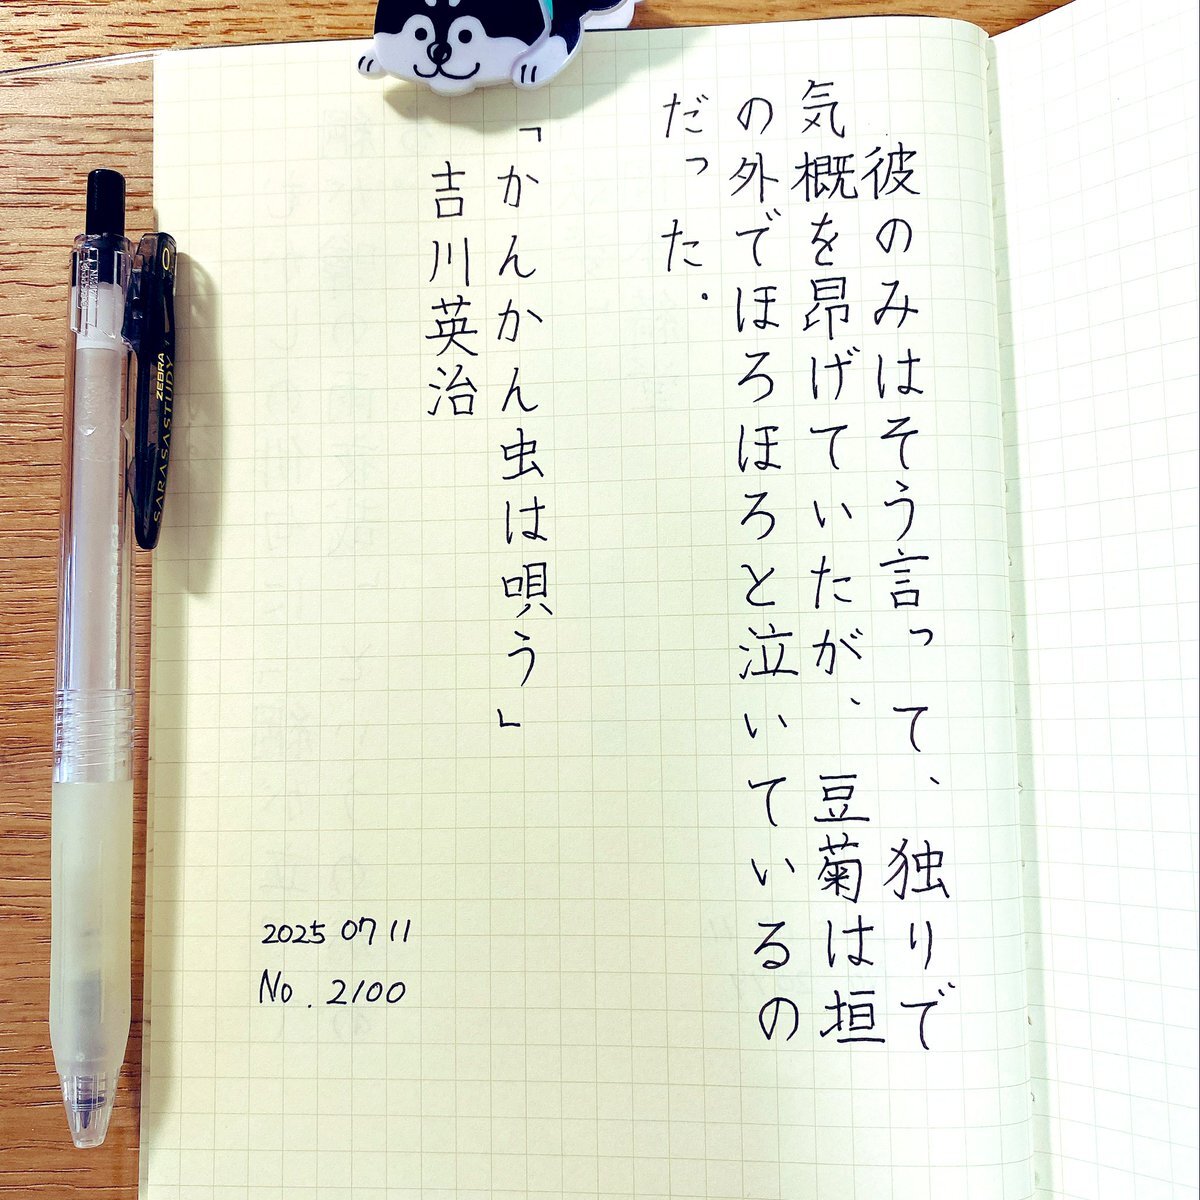 彼のみはそう言って、独りで
気概を昂げていたが、豆菊は垣
の外でほろほろと泣いているの
だった.
「かんかん虫は唄う」
吉川英治
2025 07 11
No. 2100
ZEBRA
SARASASTUDY